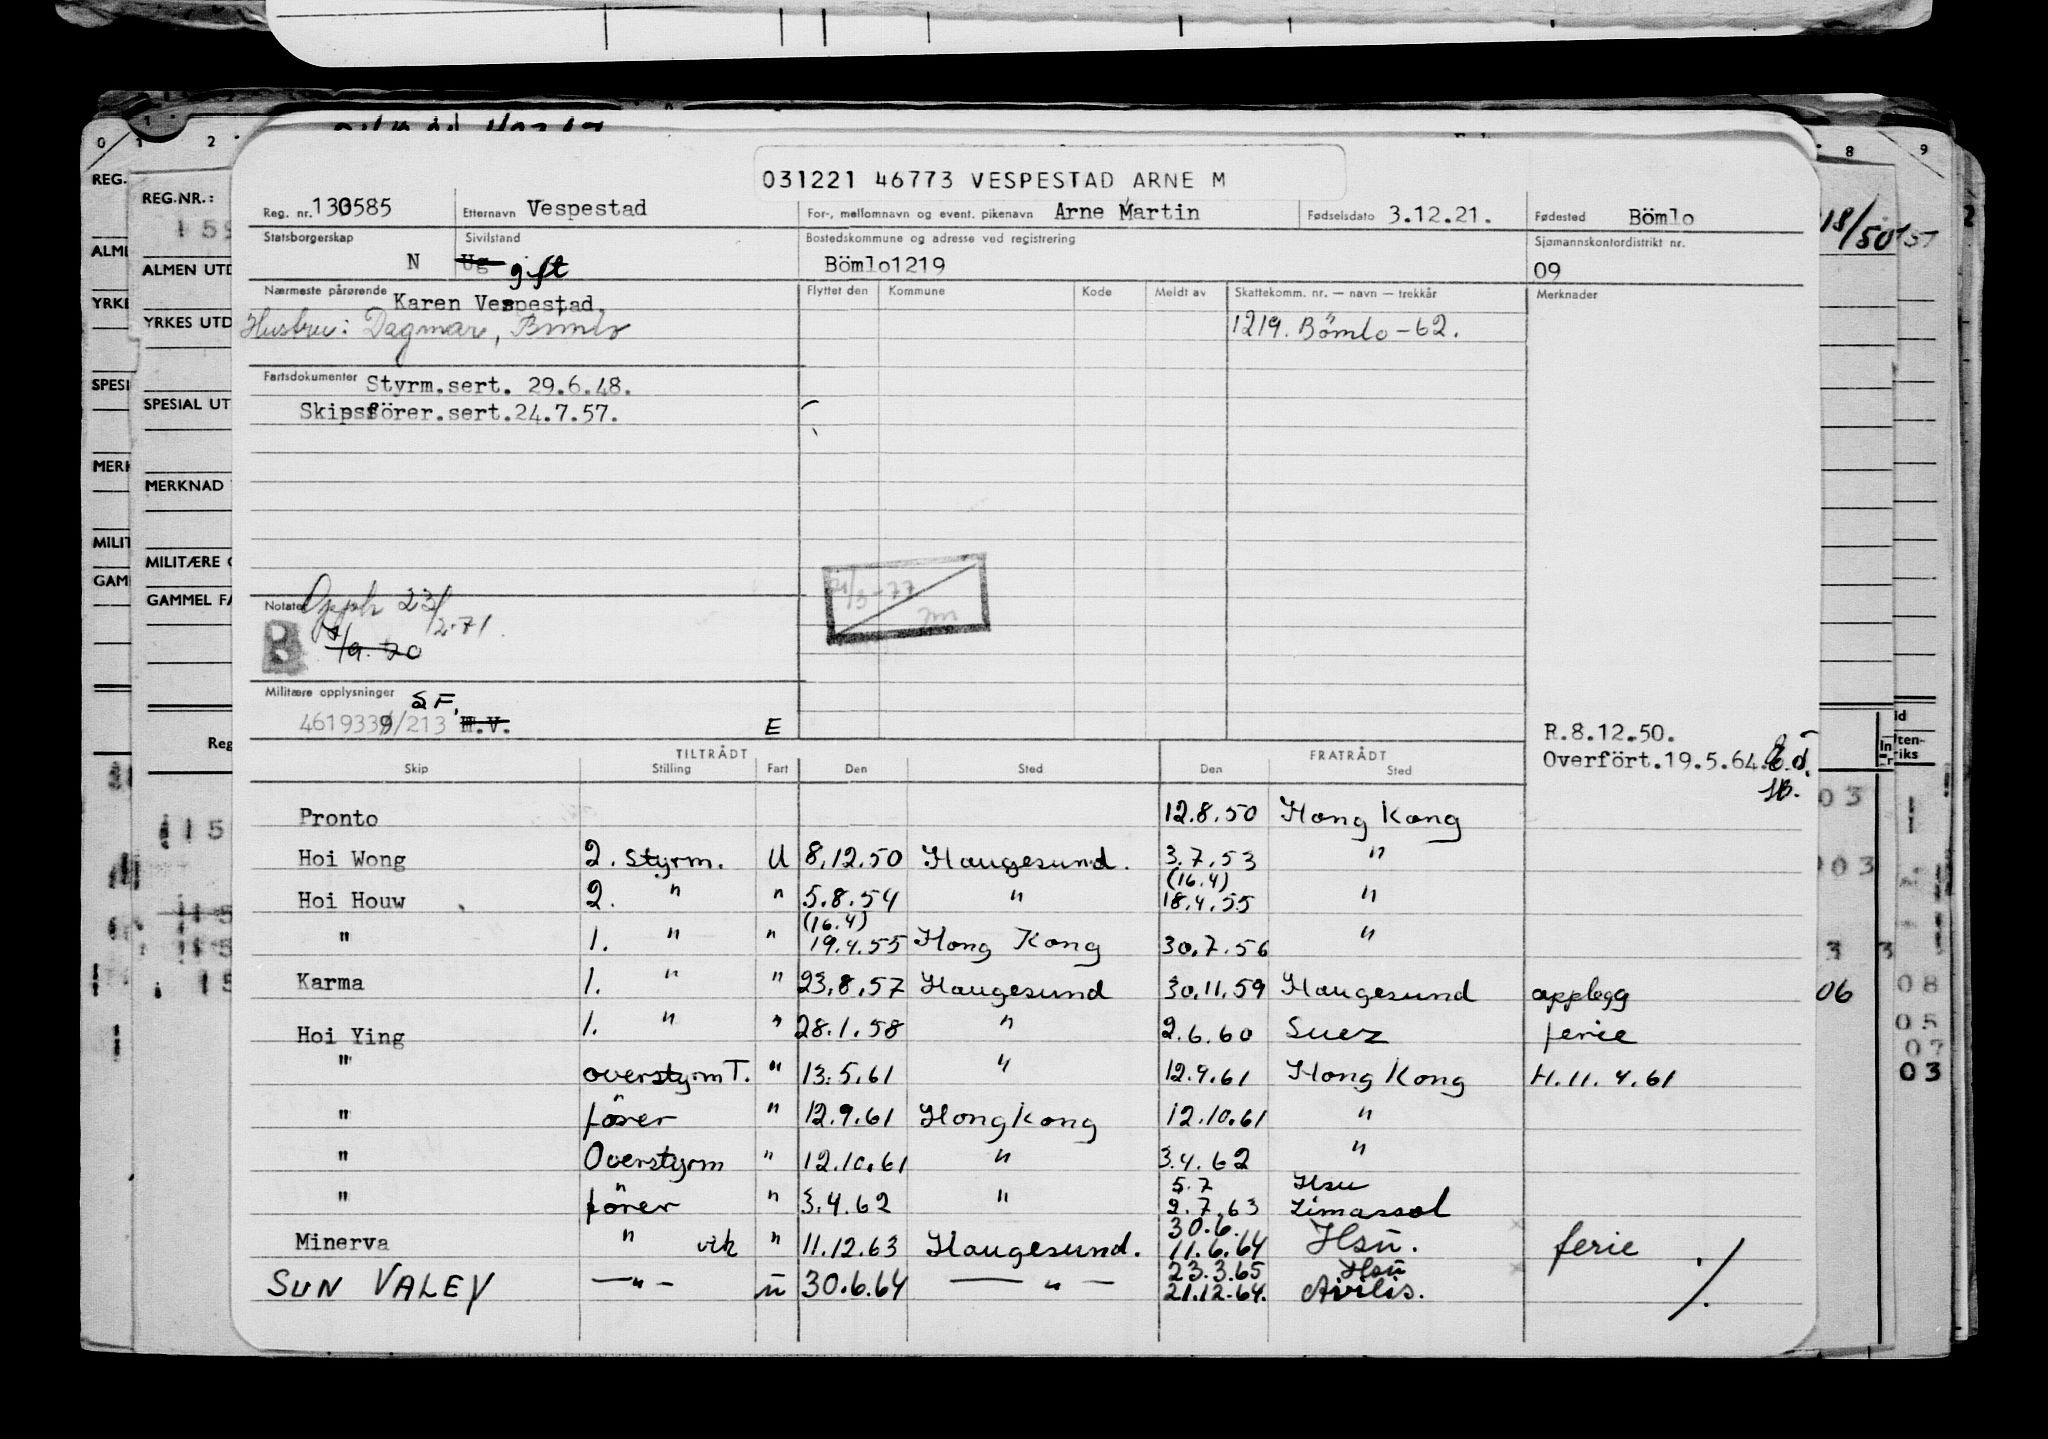 031221 46773 VESPESTAD ARNE M
Reg. nr. 130585 Etternavn Vespestad For-, mellomnavn og event. pikenavn Arne Martin Fødselsdato 3.12.21. Fødested Bömlo
Statsborgerskap Sivilstand Bostedskommune og adresse ved registrering Sjømannskontordistrikt nr.
N Ug gift Bömlo1219 09
Nærmeste pårørende Karen Vespestad. Flyttet den Kommune Kode Meldt av Skattekomm. nr. — navn — trekkår Merknader
Hustru: Dagmar, Bömlo 1219. Bömlo - 62.
Fartsdokumenter Styrm.sert. 29.6.48.
Skipsförer.sert.24.7.57.
Notater Opph 23/2.71.
B 1/9.70
/3-77
Militære opplysninger SF.
4619339/213 H.V. E
R.8.12.50.
Overfört.19.5.64.
TILTRÅDT FRATRÅDT
Skip Stilling Fart Den Sted Den Sted
Pronto 12.8.50 Hong Kong
Hoi Wong 2. styrm. U 8.12.50 Haugesund. 3.7.53 "
Hoi Houw 2. " " 5.8.54 " (16.4) 18.4.55 "
" 1. " " (16.4) 19.4.55 Hong Kong 30.7.56 "
Karma 1. " " 23.8.57 Haugesund 30.11.59 Haugesund opplegg
Hoi Ying 1. " " 28.1.58 " 2.6.60 Suez ferie
" overstyrm T. " 13.5.61 " 12.9.61 Hong Kong H.11.4.61
" förer " 12.9.61 Hong Kong 12.10.61 "
" Overstyrm " 12.10.61 " 3.4.62 "
" förer " 3.4.62 " 5.7 Hsu
2.7.63 Limassol
Minerva " vik " 11.12.63 Haugesund. 30.6. 11.6.64 Hsu. ferie
SUN VALEY —"— u 30.6.64 — " — 23.3.65 Hsu
21.12.64. Avilis.
REG.NR.:
ALMEN UTD
YRKES UTD
SPESIAL UT
MERKNAD
MILITÆRE
GAMMEL FA